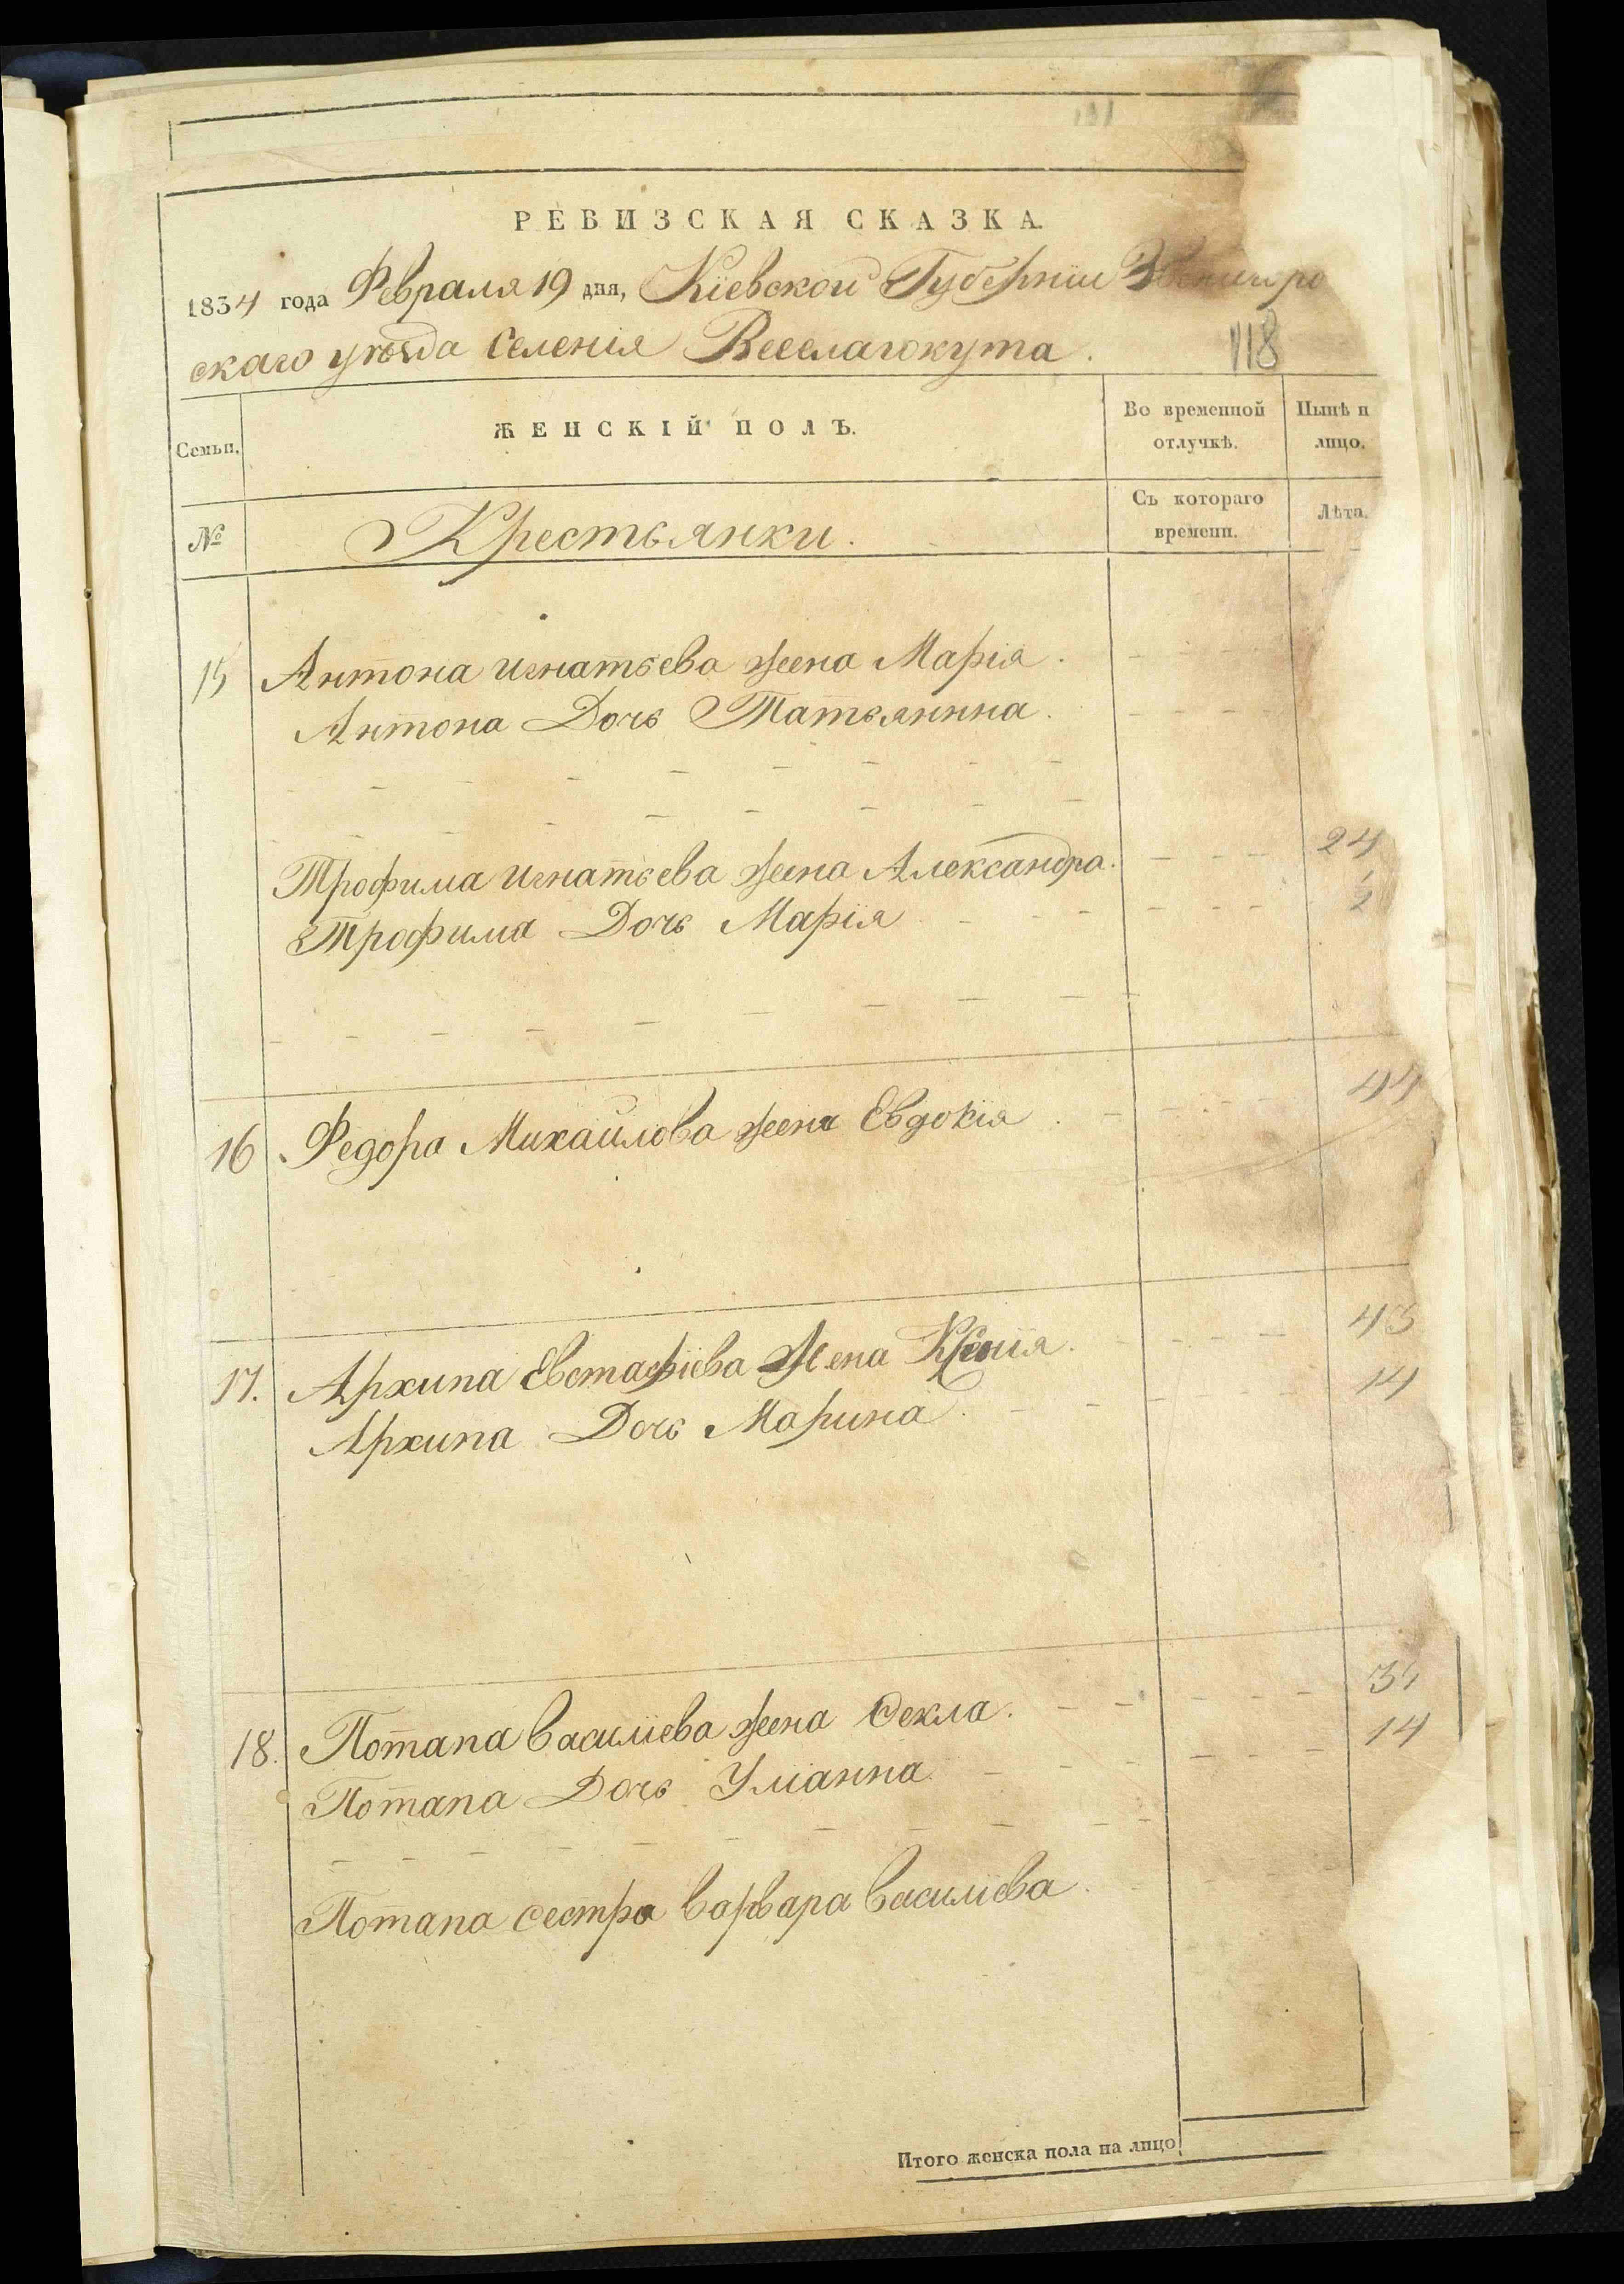 РЕВИЗСКАЯ СКАЗКА.
1834 года Февраля 19 дня, Кіевской Губерніи Звенигоро
скаго уѣзда Селенія Веселагокута.
118
Семьи. ЖЕНСКІЙ ПОЛЪ. Во временной отлучкѣ. Нынѣ н лицо.
№ Крестьянки. Съ котораго времени. Лѣта.
15 Антона Игнатьева жена Марія.
Антона Дочь Татьяннна.
Трофима Игнатьева жена Александра. 24
Трофима Дочь Марія ½
16 Федора Михайлова жена Евдокія. 44
17. Архипа Евстафіева Жена Ксенія. 43
Архипа Дочь Марина. 14
18. Потапа Василіева жена Ѳекла.
Потапа Дочь Уліанна. 14
Потапа сестра Варвара Василіева.
Итого женска пола на лицо